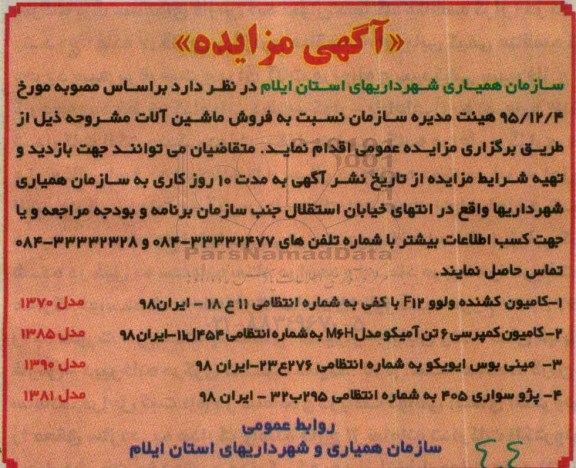 «آگهی مزایده»
سازمان همیاری شهرداریهای استان ایلام در نظر دارد براساس مصوبه مورخ
۹۵/۱۲/۴ هیئت مدیره سازمان نسبت به فروش ماشین آلات مشروحه ذیل از
طریق برگزاری مزایده عمومی اقدام نماید. متقاضیان می توانند جهت بازدید و
تهیه شرایط مزایده از تاریخ نشر آگهی به مدت ۱۰ روز کاری به سازمان همیاری
شهرداریها واقع در انتهای خیابان استقلال جنب سازمان برنامه و بودجه مراجعه و یا
جهت کسب اطلاعات بیشتر با شماره تلفن های ۳۳۳۳۲۴۷۷-۰۸۴ و ۳۳۳۳۲۳۲۸-۰۸۴
ParsNamadData
تماس حاصل نمایند.
۱-کامیون کشنده ولوو F۱۲ با کفی به شماره انتظامی ۱۱ ع ۱۸ - ایران۹۸ مدل ۱۳۷۰
۲-کامیون کمپرسی ۶ تن آمیکو مدل M۶H به شماره انتظامی ۴۵۴ل۱۱-ایران۹۸ مدل ۱۳۸۵
۳- مینی بوس ایویکو به شماره انتظامی ۲۷۶ع۲۳-ایران ۹۸ مدل ۱۳۹۰
۴- پژو سواری ۴۰۵ به شماره انتظامی ۲۹۵ب۳۲ - ایران ۹۸ مدل ۱۳۸۱
روابط عمومی
سازمان همیاری و شهرداریهای استان ایلام